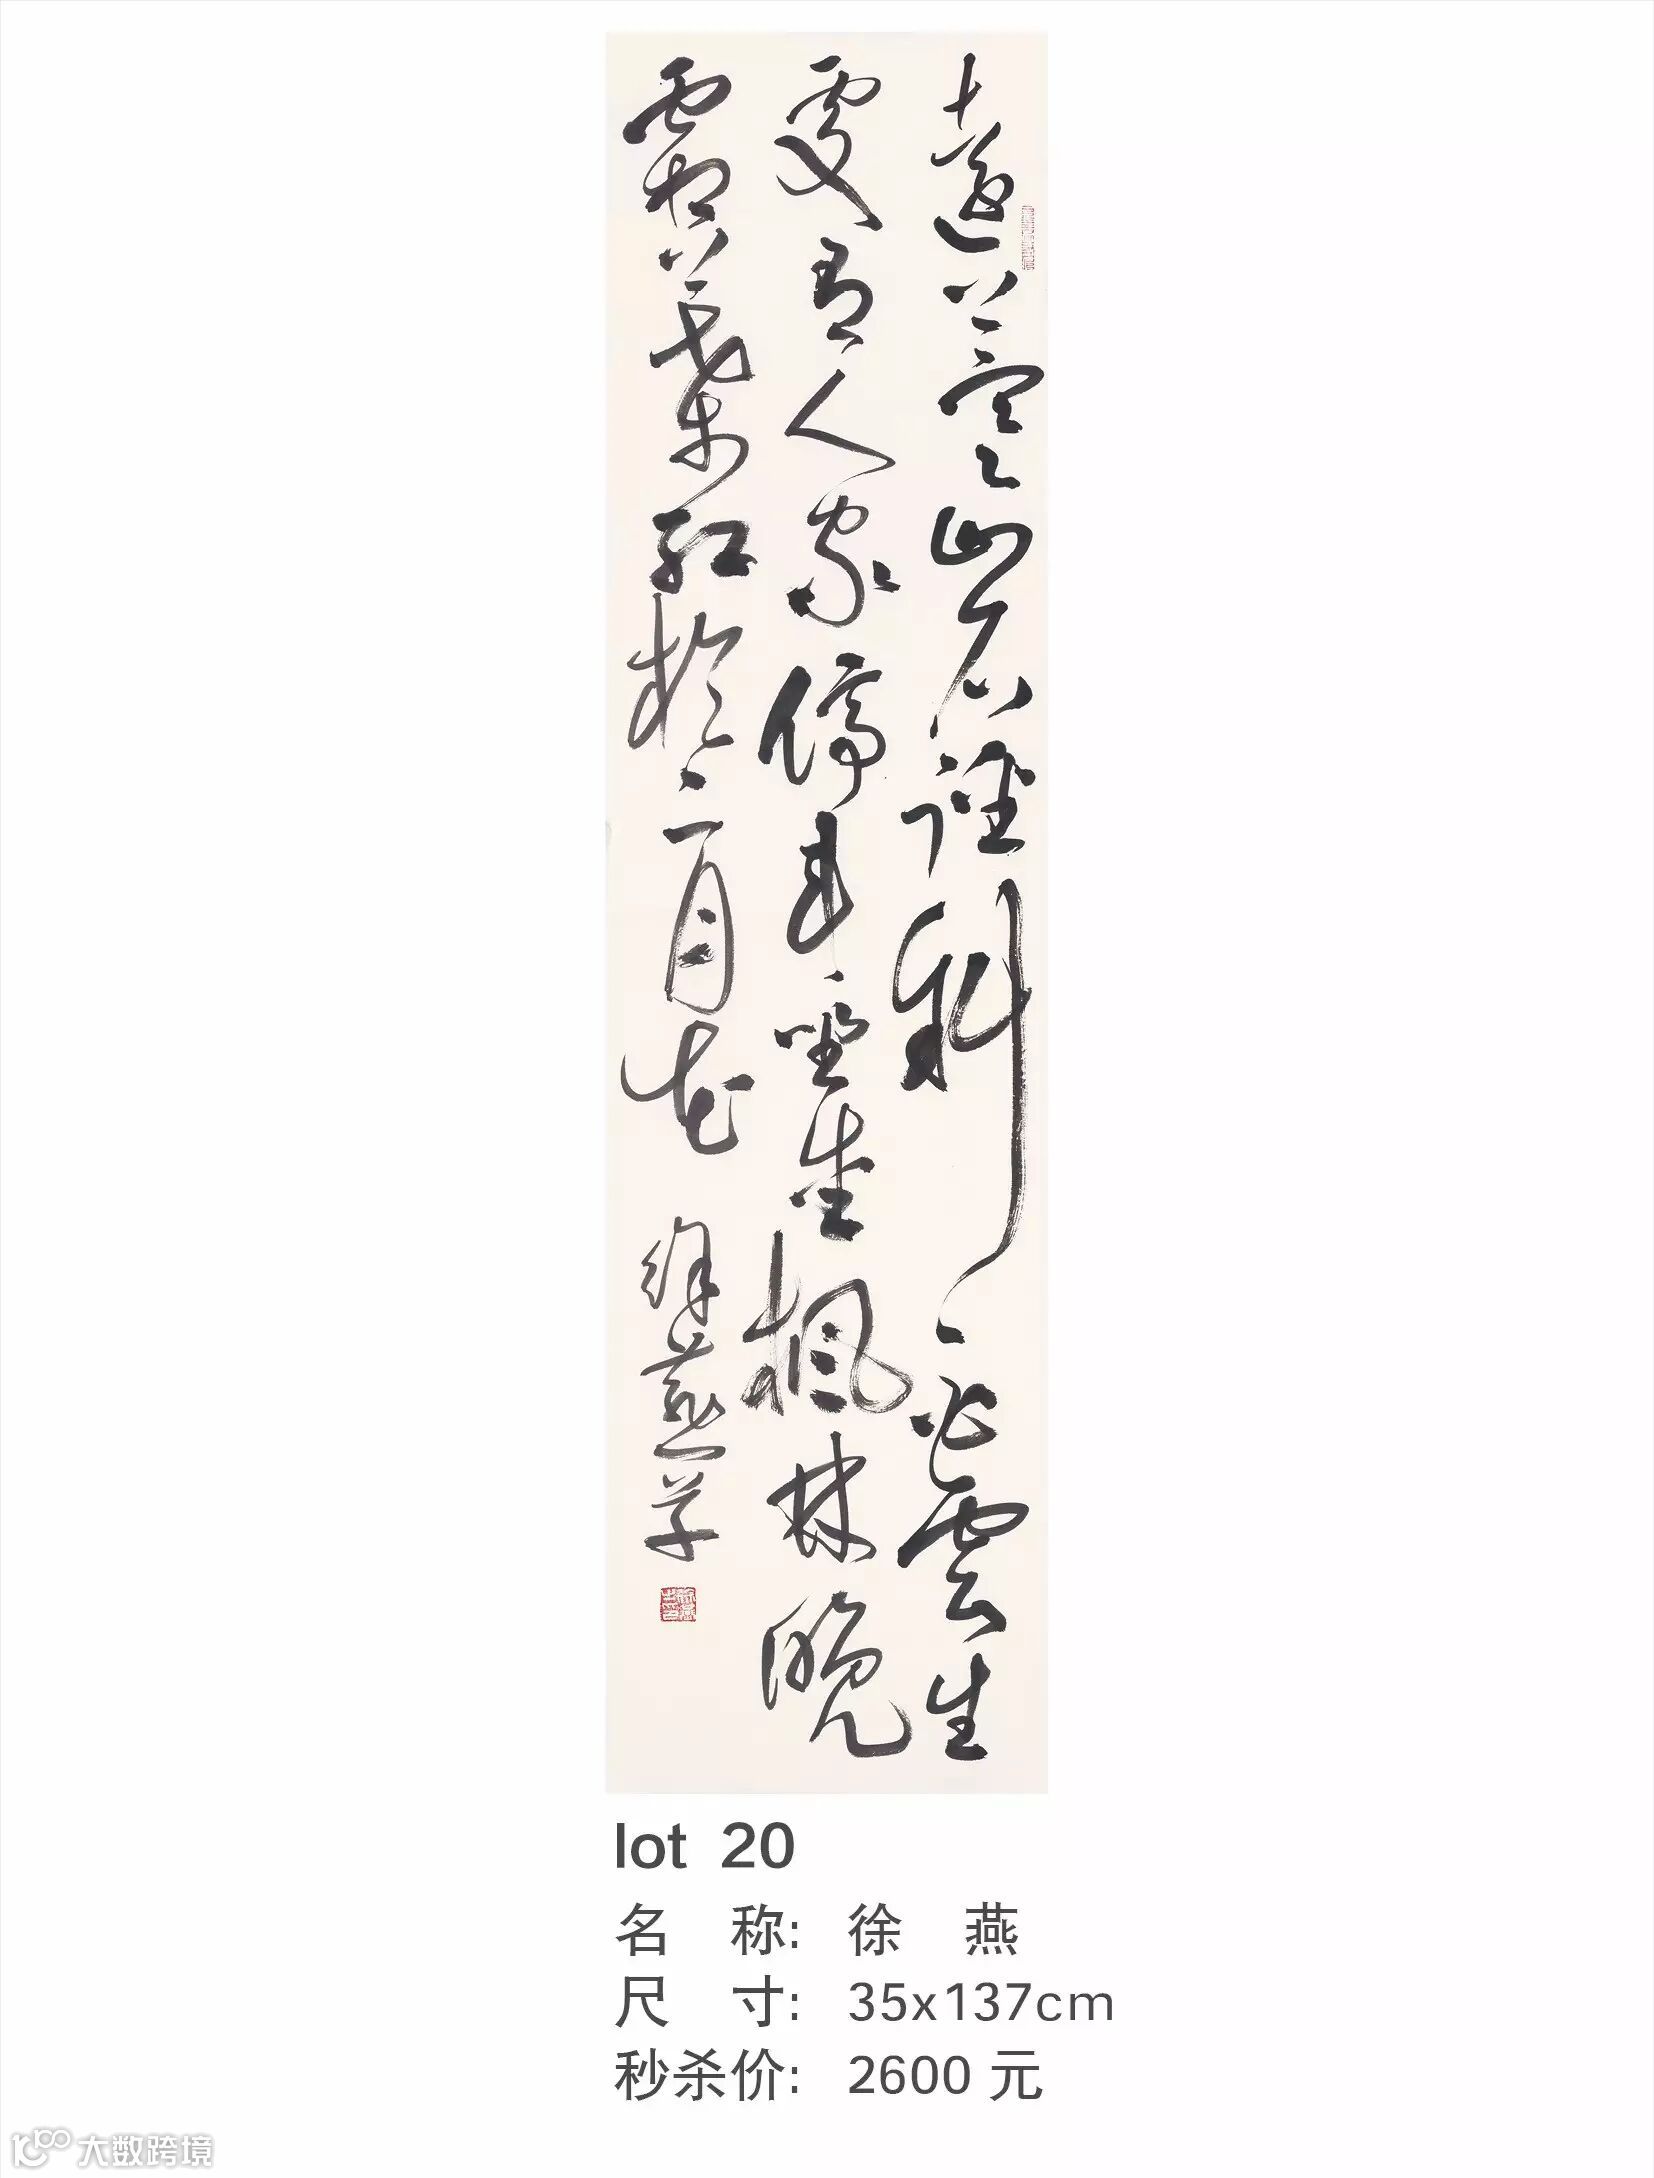 遠上寒山石徑斜白雲生
處有人家停車坐愛楓林晚
霜葉紅於二月花 徐燕草
lot 20
名 称: 徐 燕
尺 寸: 35x137cm
秒杀价: 2600 元
大数跨境